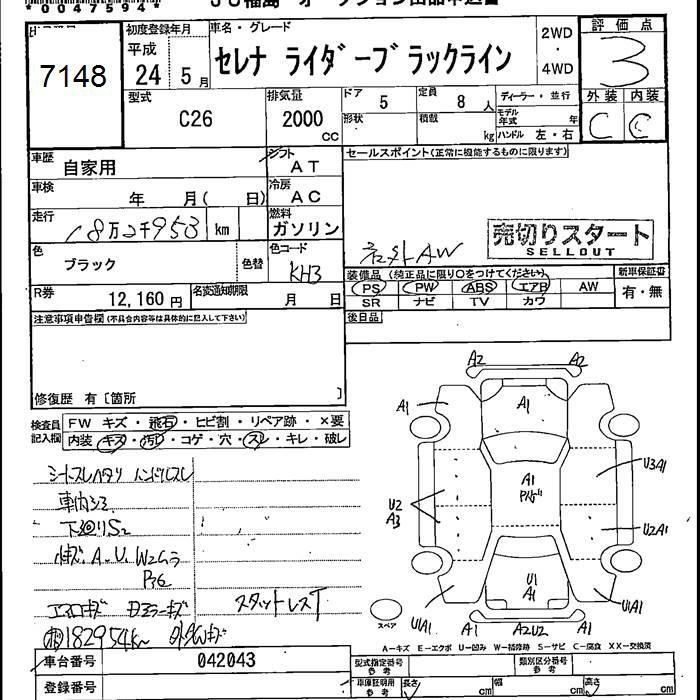 *004759 4 4*
JU福島 オークション出品申込書
7148
初度登録年月
平成
24 5月
車名・グレード
セレナ ライダーブラックライン
2WD
・
4WD
評価点
3
外装 内装
C C
型式
C26
排気量
2000
cc
ドア
5
定員
8人
ディーラー・並行
形状
積載
kg
モデル年式
年
ハンドル 左・右
車歴
自家用
シフト
AT
セールスポイント(正常に機能するものに限ります)
車検
年 月( 日)
冷房
AC
走行
18万2千953 km
燃料
ガソリン
社外AW
売切りスタート
SELLOUT
色
ブラック
色替
色コード
KH3
装備品(純正品に限り○をつけてください)
新車保証書
PS PW ABS エアB AW
有・無
SR ナビ TV カワ
R券
12,160円
名変通知期限
月 日
後日品
注意事項申告欄(不具合内容等は具体的に記入して下さい)
修復歴 有〔箇所 〕
検査員記入欄
FW キズ・飛石・ヒビ割・リペア跡・×要
内装・キズ・汚れ・コゲ・穴・スレ・キレ・破レ
シートスレヘタリ ハンドルスレ
車内シミ
下廻りS2
キズ. A. U. W2ムラ
エアロキズ ドアミラーキズ
スタットレスT
182954km
A2 A2
A1
A1
A1
U3A1
U2
A3
U2A1
U1
A1
U1A1
U1A1
A1 A2U2 A1
スペア
A-キズ E-エクボ U-凹み W-補修跡 S-サビ C-腐食 XX-交換済
車台番号
042043
型式指定番号
参考
類別区分番号
参考
登録番号
車庫証明用
参考
長さ
cm
幅
cm
高さ
cm